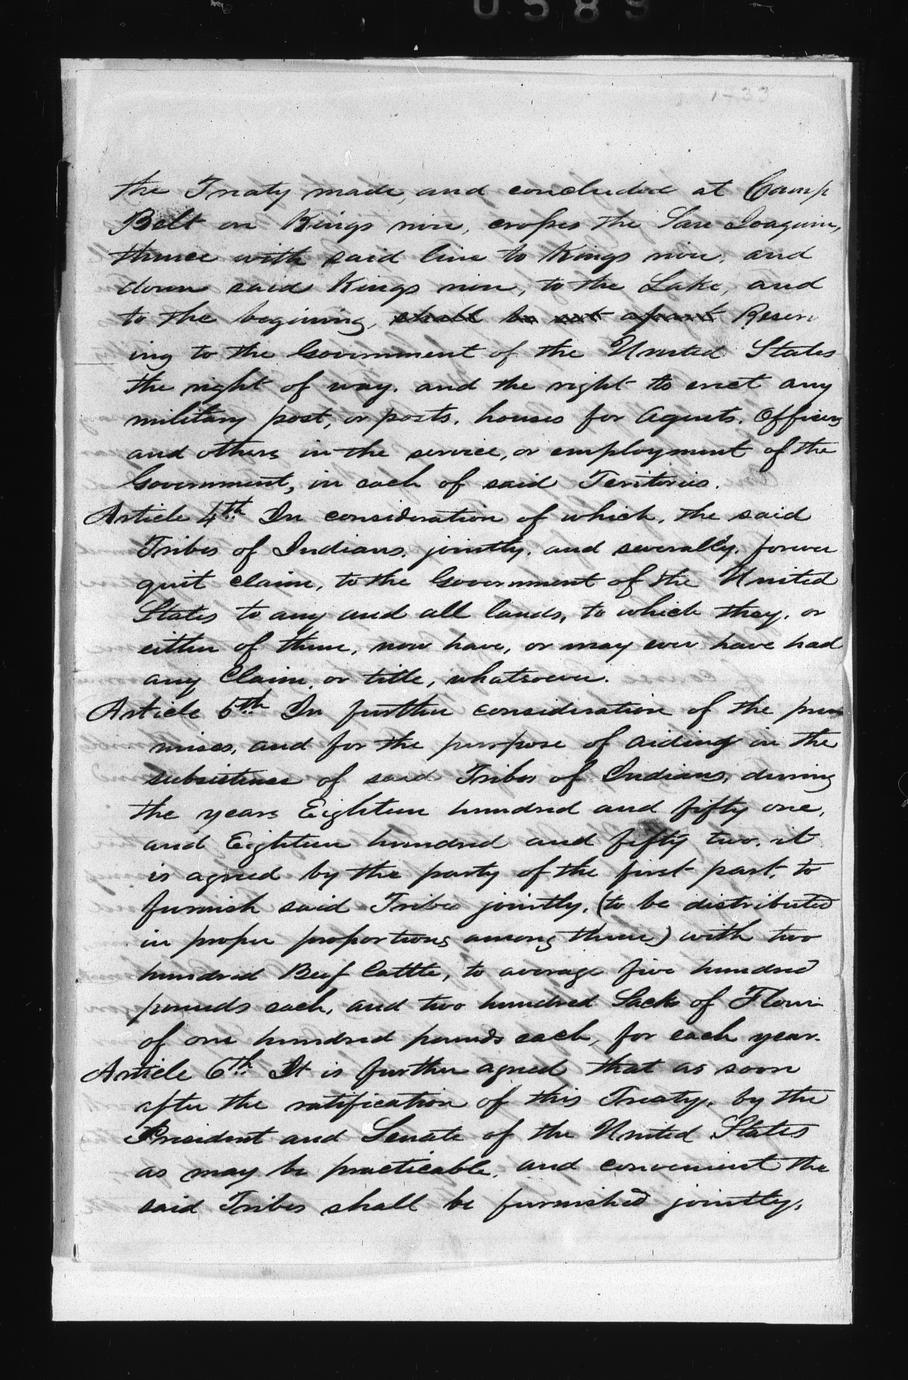 0583
1-33
the Treaty made, and concluded at Camp
Belt on Kings river, crosses the San Joaquin,
thence with said line to Kings river, and
down said Kings river, to the Lake, and
to the begining, shall be set apart Reserv
ing to the Government of the United States
the right of way. and the right to erect any
military post, or posts. houses for Agents. Officers
and others in the service, or employment of the
Government, in each of said Teritories.
Article 4th In consideration of which, the said
Tribes of Indians, jointly, and severally, forever
quit claim, to the Government of the United
States to any and all lands, to which they, or
either of them, now have, or may ever have had
any Claim or title, whatsoever.
Article 5th In further consideration of the pre
mises, and for the purpose of aiding in the
subsistence of said Tribes of Indians, during
the years Eighteen hundred and fifty one,
and Eighteen hundred and fifty two, it
is agreed by the party of the first part, to
furnish said Tribes jointly, (to be distributed
in proper proportions among them) with two
hundred Beef Cattle, to average five hundred
pounds each, and two hundred Sacks of Flour
of one hundred pounds each, for each year.
Article 6th It is further agreed that as soon
after the ratification of this Treaty, by the
President and Senate of the United States
as may be practicable, and convenient the
said Tribes shall be furnished jointly,